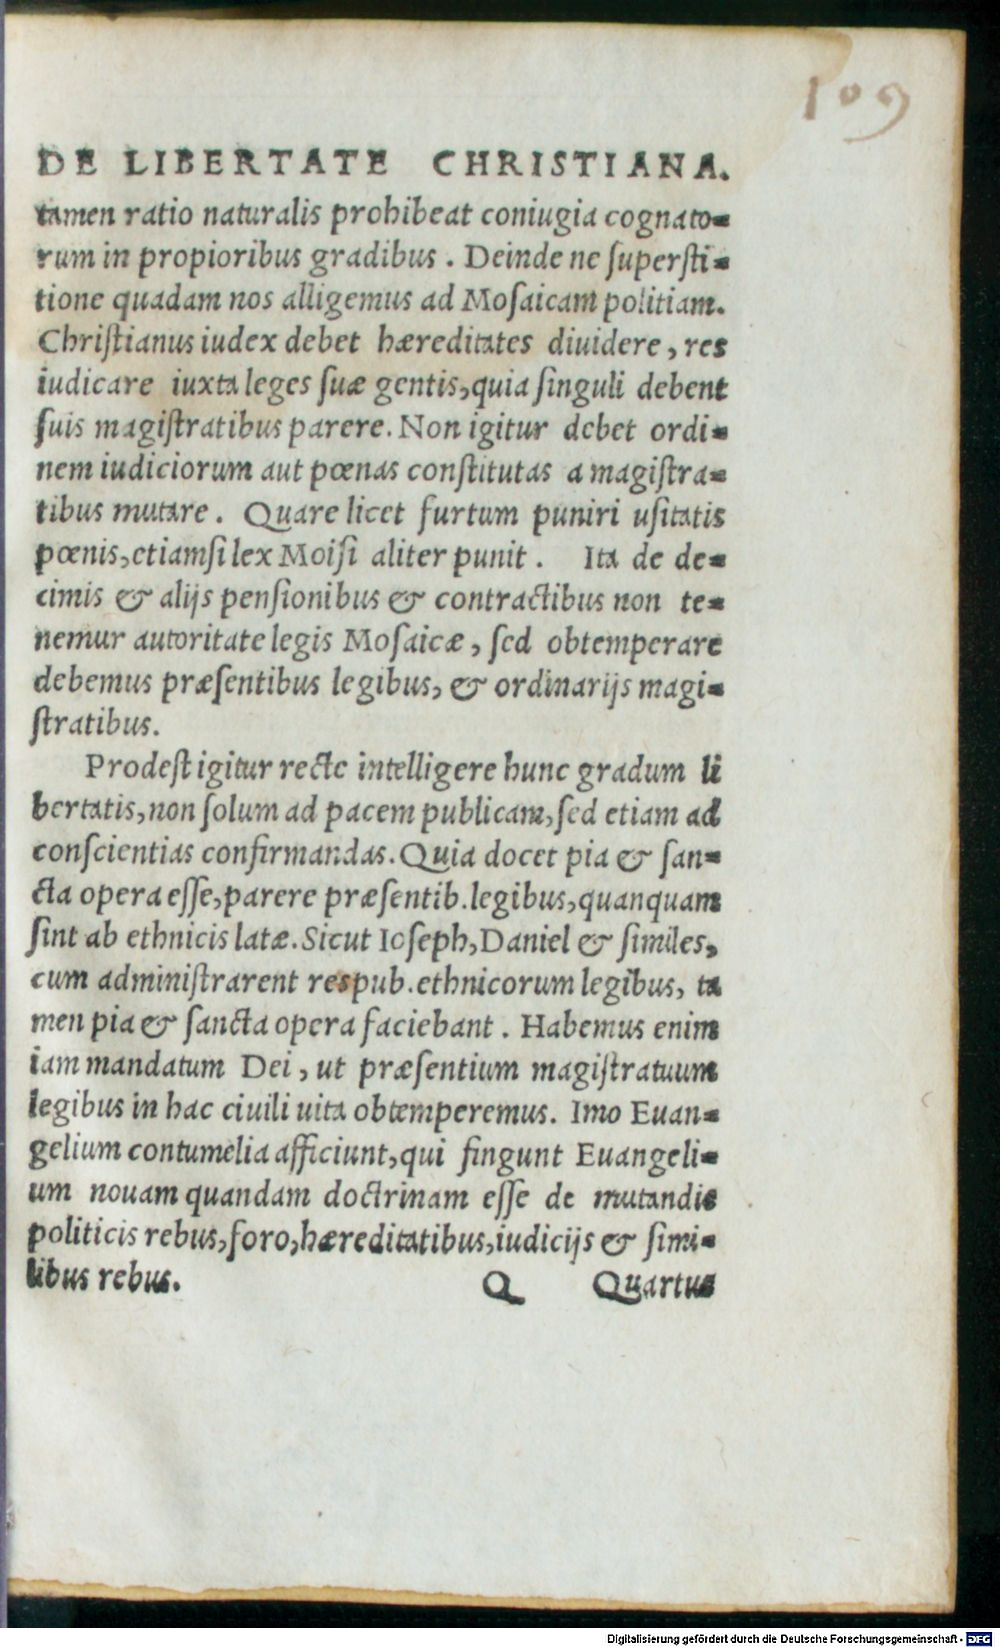 109
DE LIBERTATE CHRISTIANA.
tamen ratio naturalis prohibeat coniugia cognato-
rum in propioribus gradibus . Deinde ne superſti-
tione quadam nos alligemus ad Moſaicam politiam.
Chriſtianus iudex debet hæreditates diuidere , res
iudicare iuxta leges ſuæ gentis, quia ſinguli debent
ſuis magiſtratibus parere. Non igitur debet ordi-
nem iudiciorum aut pœnas conſtitutas a magiſtra-
tibus mutare . Quare licet furtum puniri uſitatis
pœnis, etiamſi lex Moiſi aliter punit . Ita de de-
cimis & alijs penſionibus & contractibus non te-
nemur autoritate legis Moſaicæ , ſed obtemperare
debemus præſentibus legibus, & ordinarijs magi-
ſtratibus.
Prodeſt igitur recte intelligere hunc gradum li
bertatis, non ſolum ad pacem publicam, ſed etiam ad
conſcientias confirmandas. Quia docet pia & ſan-
cta opera eſſe, parere præſentib. legibus, quanquam
ſint ab ethnicis latæ. Sicut Ioſeph, Daniel & ſimiles,
cum adminiſtrarent reſpub. ethnicorum legibus, ta
men pia & ſancta opera faciebant . Habemus enim
iam mandatum Dei , ut præſentium magiſtratuum
legibus in hac ciuili uita obtemperemus. Imo Euan-
gelium contumelia afficiunt, qui fingunt Euangeli-
um nouam quandam doctrinam eſſe de mutandis
politicis rebus, foro, hæreditatibus, iudicijs & ſimi-
libus rebus.
Q Quartus
Digitalisierung gefördert durch die Deutsche Forschungsgemeinschaft - DFG